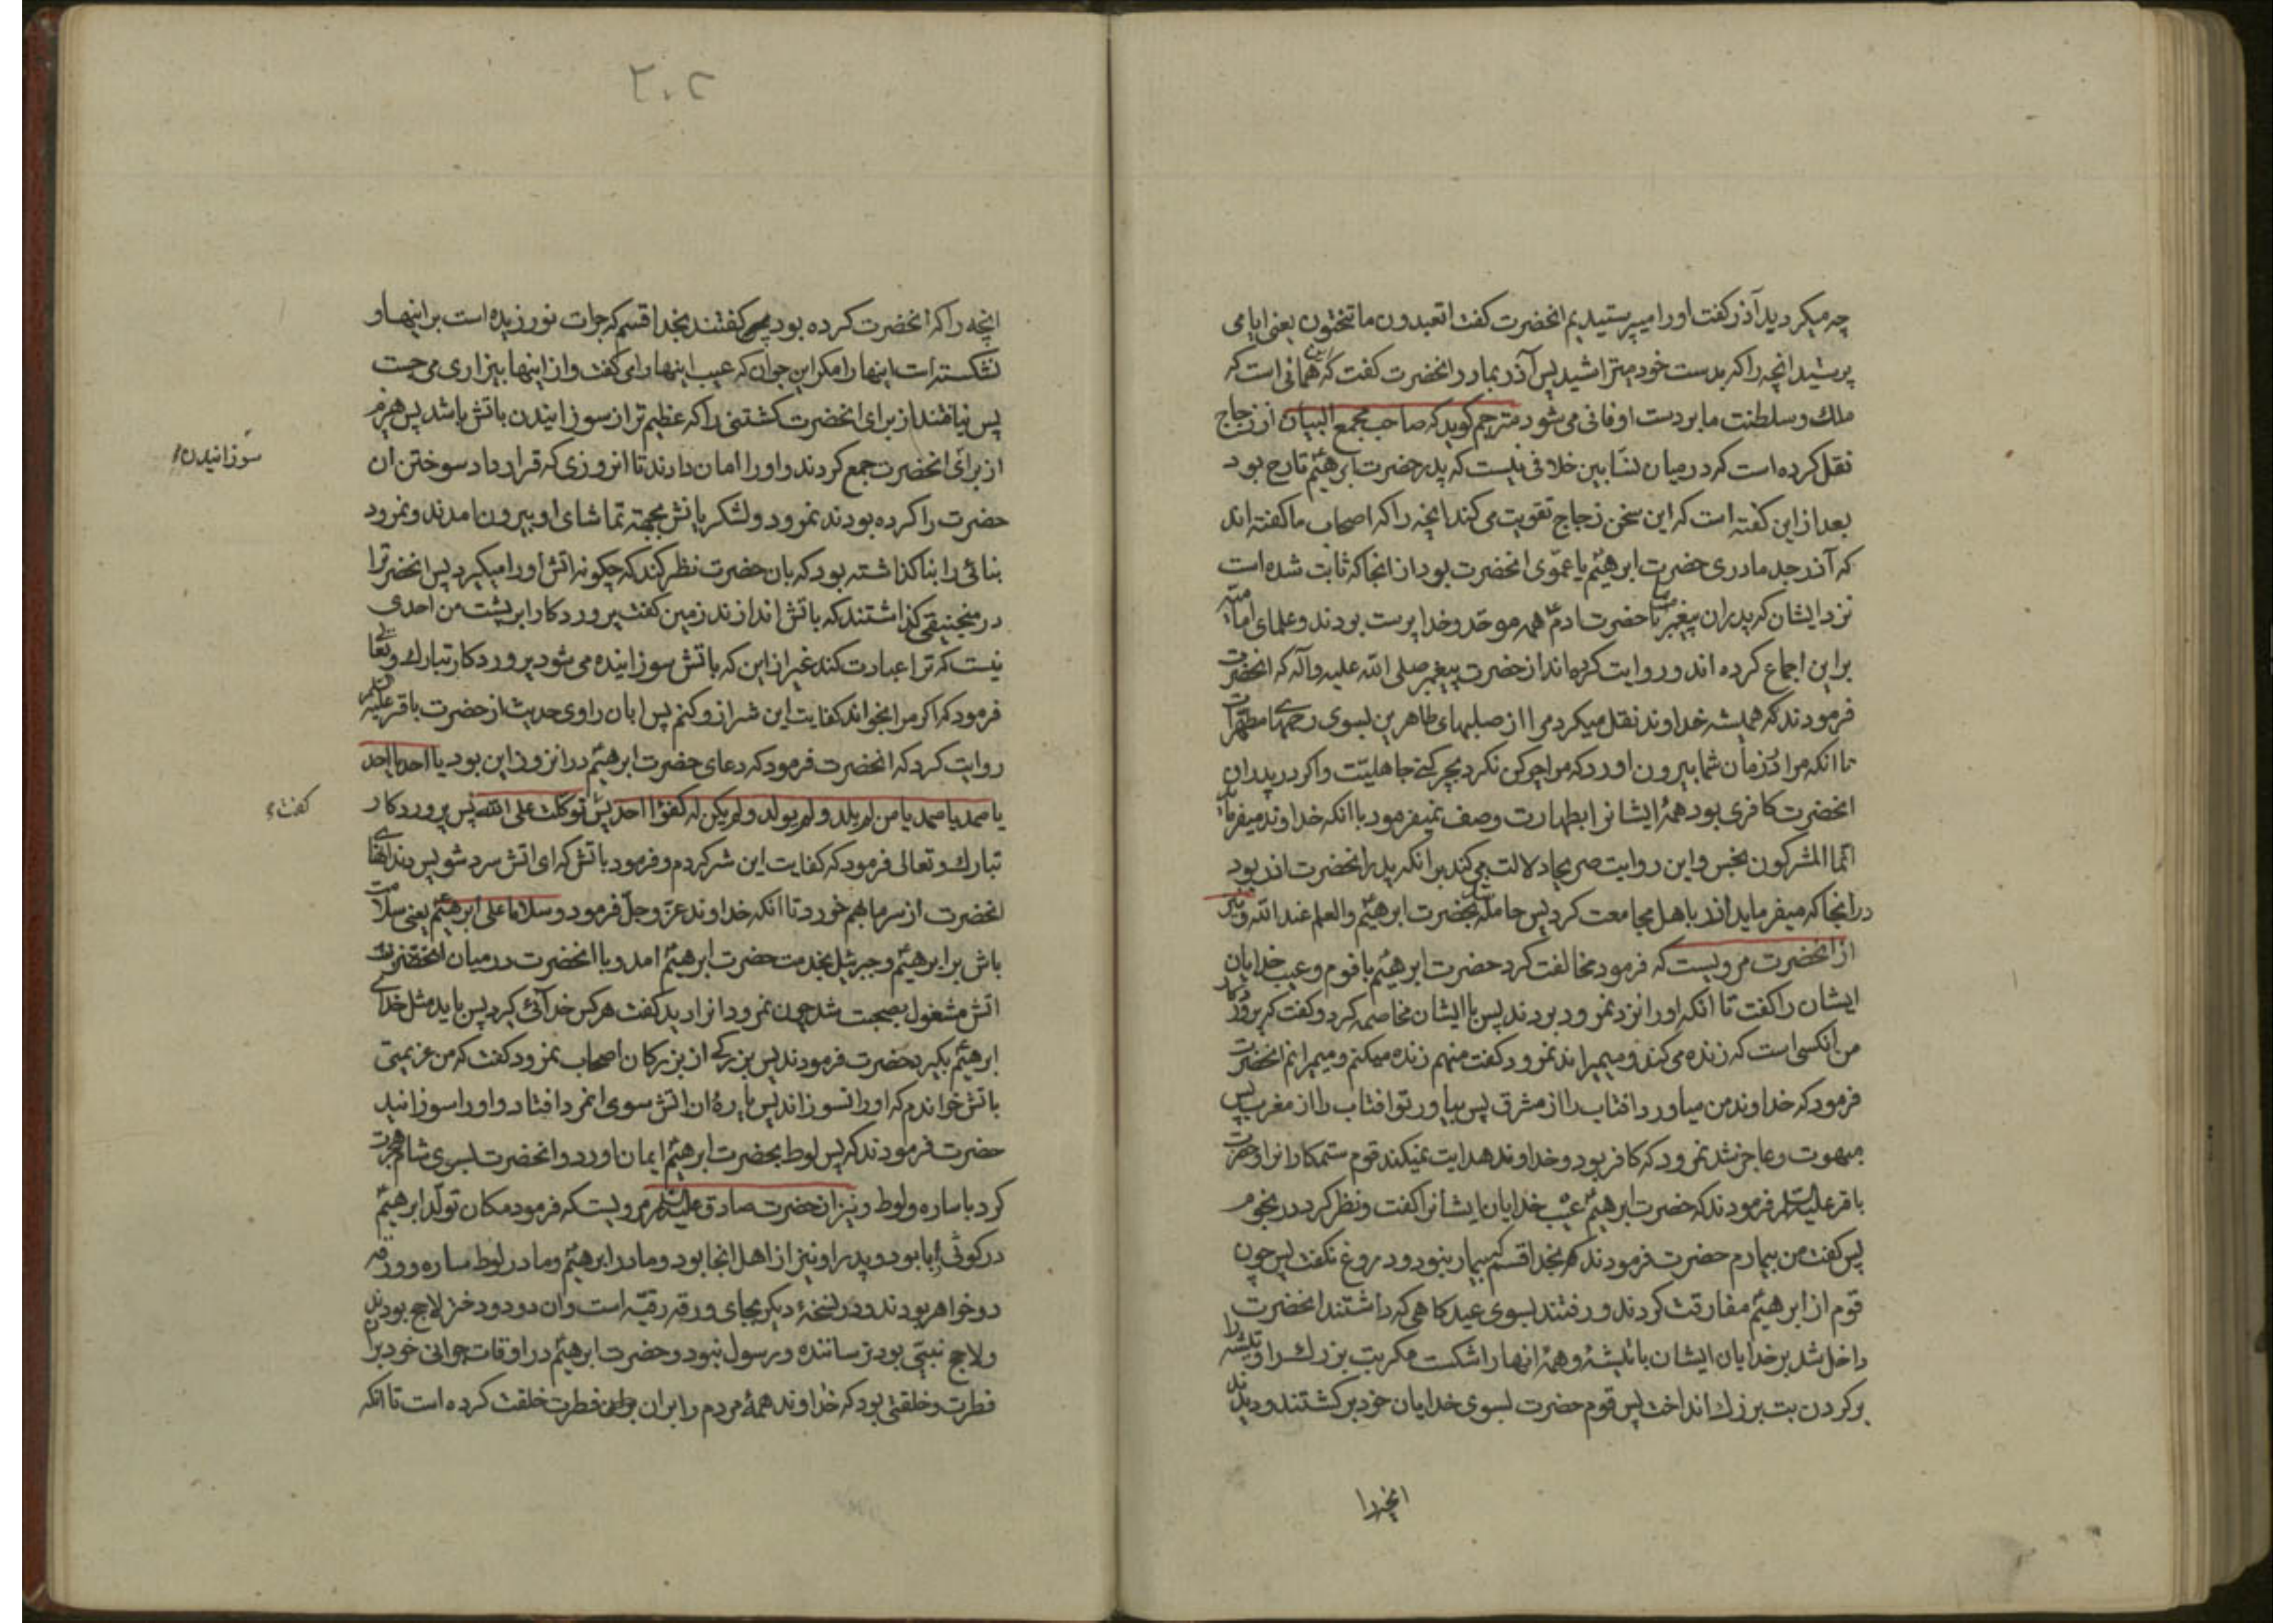 چه میکردید آذر گفت او را میپرستیدیم انحضرت گفت اتعبدون ما تنحتون یعنی ایا می
پرستید انچه را که بدست خود میتراشید پس آذر بمادر انحضرت گفت که این همانی است که
ملك و سلطنت ما بر دست او فانی می شود مترجم کوید که صاحب مجمع البیان از زجاج
نقل کرده است که در میان نسّابین خلافی نیست که پدر حضرت ابرهیمؑ تارح بود
بعد از این کفته است که این سخن زجاج تقویت می کند انچه را که اصحاب ما کفته اند
که آذر جد مادری حضرت ابرهیمؑ یا عموّی انحضرت بود از انجا که ثابت شده است
نزد ایشان که پدران پیغمبر ما تا حضرت ادمؑ همه موحّد و خدا پرست بودند و علمای امامیّه
براین اجماع کرده اند و روایت کرده اند از حضرت پیغمبر صلی الله علیه و آله که انحضرت
فرمودند که همیشه خداوند نقل میکرد مرا از صلبهای طاهرین بسوی رحمهای مطهرات
تا انکه مرا در زمان شما بیرون اورد که مرا چرکن نکرد بچرکنی جاهلیّت و اکر در پدران
انحضرت کافری بود همۀ ایشانرا بطهارت وصف نمیفرمود با انکه خداوند میفرماید
انّما المشرکون نجس و این روایت صریحا دلالت می کند بر انکه پدر انحضرت اذر بود
در انجا که میفرماید اذر باهل مجامعت کرد پس حامله شد بحضرت ابرهیمؑ والعلم عند الله و نیز
از انحضرت مرویست که فرمود مخالفت کرد حضرت ابرهیمؑ با قوم و عیب خدایان
ایشان را کفت تا انکه او را نزد نمرود بردند پس با ایشان مخاصمه کرد و کفت که پروردکار
من انکسی است که زنده می کند و میمیراند نمرود کفت منهم زنده میکنم و میمیرانم انحضرت
فرمود که خداوند من میاورد افتاب را از مشرق پس بیاور تو افتاب را از مغرب پس
مبهوت و عاجز شد نمرود که کافر بود و خداوند هدایت نمیکند قوم ستمکارانرا و حضرت
باقر علیه السلام فرمودند که حضرت ابرهیمؑ عیب خدایان ایشانرا کفت و نظر کرد در نجوم
پس کفت من بیمارم حضرت فرمودند که بخدا قسم که بیمار نبود و دروغ نکفت پس چون
قوم از ابرهیمؑ مفارقت کردند و رفتند بسوی عید کاهی که داشتند انحضرت
داخل شد بر خدایان ایشان با تیشۀ و همۀ انها را شکست مکر بت بزرك را و تیشه را
بر کردن بت بزرك انداخت پس قوم حضرت بسوی خدایان خود بر کشتند و دیدند
انچه را
۲۰۲
انچه را که انحضرت کرده بود کفتند بخدا قسم که جرات نورزیده است بر اینها و
نشکسته است اینها را مکر این جوان که عیب اینها را می کفت و از اینها بیزاری می جست
پس نیافتند از برای انحضرت کشتنی را که عظیم تر از سوزانیدن باتش باشد پس هیزم
سوزانیدن
از برای انحضرت جمع کردند و او را امان دادند تا انروزی که قرار داد سوختن ان
حضرت را کرده بودند نمرود و لشکریانش بجهة تماشای او بیرون امدند و نمرود
بنائی را بنا کذاشته بود که بان حضرت نظر کند که چکونه اتش او را میکیرد پس انحضرترا
در منجنیقی کذاشتند که باتش اندازند زمین کفت پروردکارا بر پشت من احدی
نیست که ترا عبادت کند غیر از این که باتش سوزانیده می شود پروردکار تبارك و تعالی
فرمود که اکر مرا بخواند کفایت این شر از و کنم پس ابان راوی حدیث از حضرت باقر علیه
روایت کرد که انحضرت فرمود که دعای حضرت ابرهیمؑ در انروز این بود یا احد یا احد
یا صمد یا صمد یا من لم یلد ولم یولد ولم یکن له کفوًا احد پس توکّلت علی الله پس پروردکار
کفت
تبارك و تعالی فرمود که کفایت این شر کردم و فرمود باتش که ای اتش سرد شو پس دندانهای
انحضرت از سرما بهم خورد تا انکه خداوند عزّ وجلّ فرمود و سلاما علی ابرهیمؑ یعنی سلامت
باش بر ابرهیمؑ و جبرئیل بخدمت حضرت ابرهیمؑ امد و با انحضرت در میان
اتش مشغول بصحبت شد چون نمرود انرا دید کفت هر کس خدائی کیرد پس باید مثل خدای
ابرهیمؑ بکیرد حضرت فرمودند پس بزرکی از بزرکان اصحاب نمرود کفت که من عزیمتی
باتش خواندم که او را نسوزاند پس پارۀ از ان اتش سوی انمرد افتاد و او را سوزانید
حضرت فرمودند که پس لوط بحضرت ابرهیمؑ ایمان اورد و انحضرت بسوی شام هجرت
کرد با ساره و لوط و نیز از حضرت صادق علیه السلام مرویست که فرمود مکان تولّد ابرهیمؑ
در کوثی ربا بود و پدر او نیز از اهل انجا بود و مادر ابرهیمؑ و مادر لوط ساره و ورقه
دو خواهر بودند و در نسخۀ دیکر بجای ورقه رقیّه است و ان دو دختر لاحج بودند
و لاحج نبیّی بود ترساننده و رسول نبود و حضرت ابرهیمؑ در اوقات جوانی خود بران
فطرت و خلقتی بود که خداوند همۀ مردم را بران فطرت خلقت کرده است تا انکه